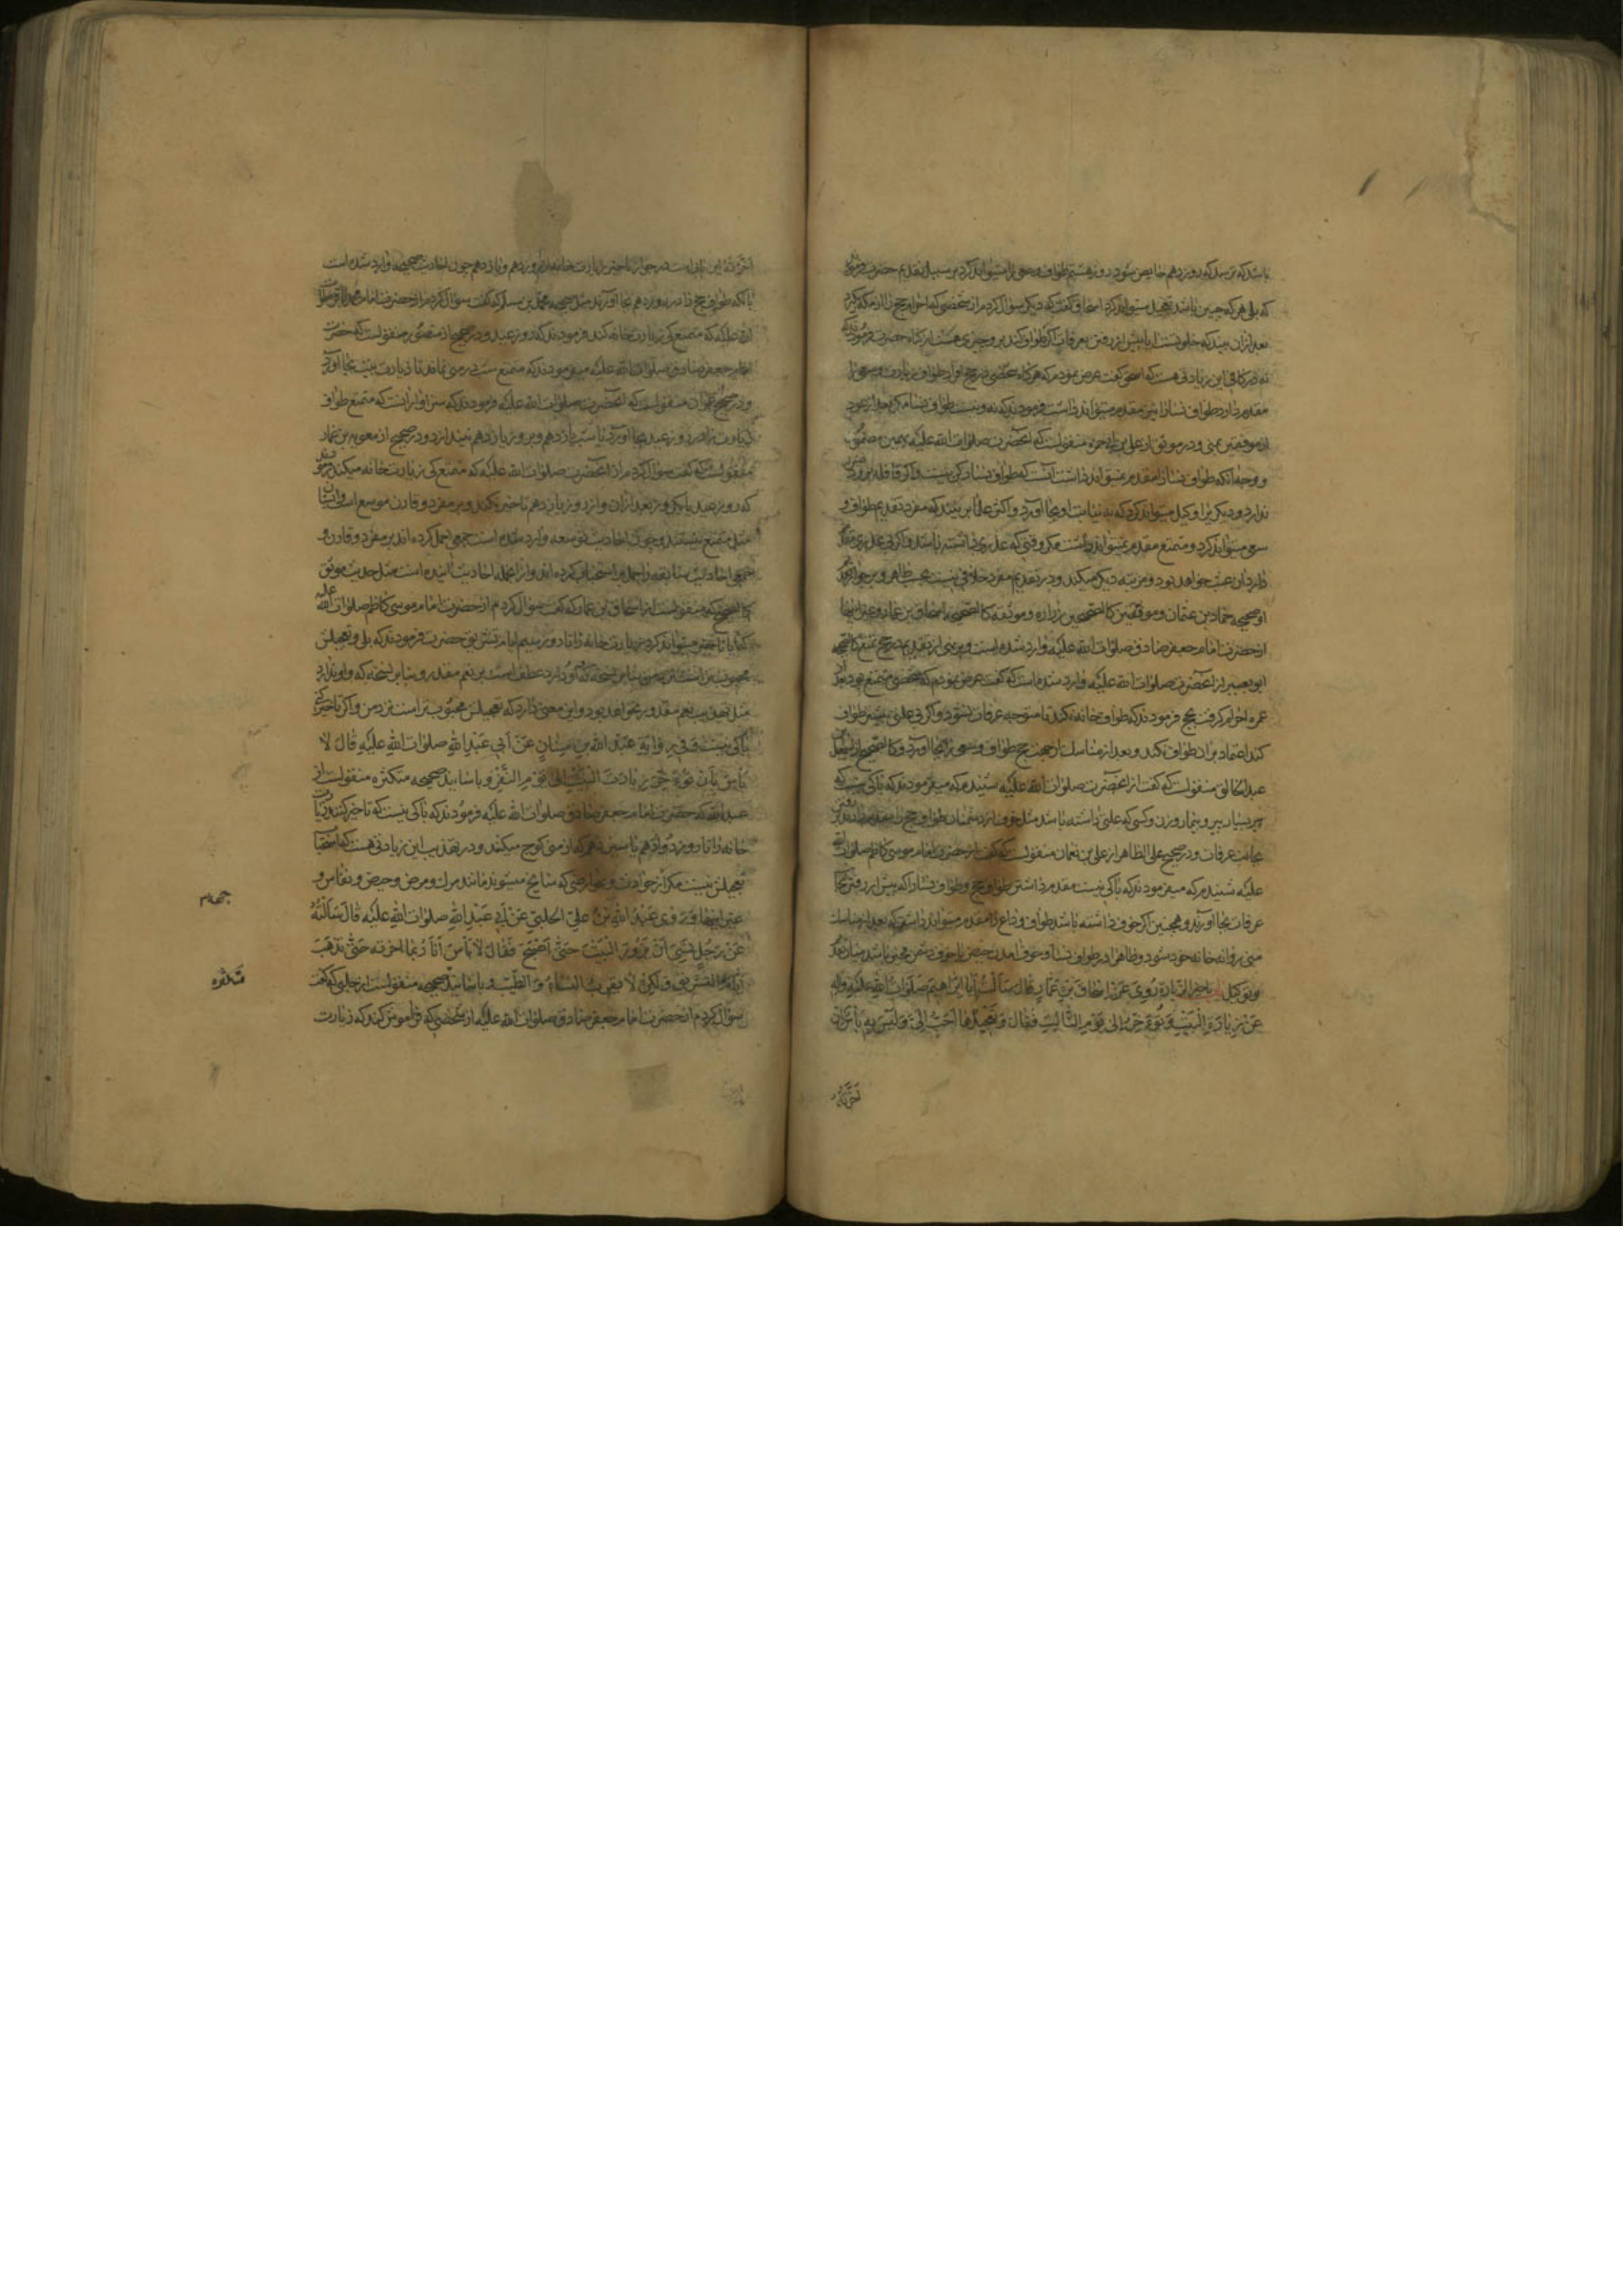 باشد که ترسد که روز دهم حایض شود روز هشتم طواف وسعی را میتواند کرد بر سبیل تقدیم حضرت فرمودند
که بلی هر که چنین باشد تعجیل میتواند کرد اسحاق گفت که دیگر سؤال کردم از شخصی که احرام حج را از مکه گیرد
بعد از آن بیند که خلوتست آیا پیش از رفتن بعرفات اگر طواف کند برو چیزی هست از گناه حضرت فرمودند که
نه در کافی این زیادتی هست که اسحق گفت عرض نمودم که هرگاه شخصی در حج افراد طواف زیارت وسعی را
مقدم دارد طواف نسا را نیز مقدم میتواند داشت فرمودند که نه ونیست طواف نسا مگر بعد از عود
از موقفین بمنی ودر موثق از علی بن ابی حمزه منقولست که آنحضرت صلوات الله علیه بهمین مضمون
ووجه آنکه طواف نسا را مقدم نمیتواند داشت آنست که طواف نسا رکن نیست واگر قافله برود
ندارد ودیگری را وکیل میتواند کرد که به نیابت او بجا آورد واکثر علما بر بنند که مفرد تقدیم طواف و
سعی میتواند کرد ومتمتع مقدم نمیتواند داشت مگر وقتی که عذری داشته باشد واگر بی عذری مقدم
دارد آن عبث خواهد بود ومرتبه دیگر میکند ودر تقدیم مفرد خلافی نیست بحسب ظاهر وبر جواز تقدیم
او صحیحه حماد بن عثمان وموثقتین کالصحیحین زراره وموثقه کالصحیحه اسحاق بن عمار وغیر اینها
از حضرت امام جعفر صادق صلوات الله علیه وارد شده است وبر نهی از تقدیم در حج تمتع کالصحیحه
ابو بصیر از آنحضرت صلوات الله علیه وارد شده است که گفت عرض نمودم که شخصی متمتع بود بعد از
عمره احرام گرفت بحج فرمودند که طواف خانه نکند تا متوجه عرفات نشود واگر بی علتی پیشتر طواف
کند اعتماد بر آن طواف نکند وبعد از مناسک از جهت حج طواف وسعی را بجا آورد وکالصحیح از اسمعیل بن
عبدالخالق منقولست که گفت از آنحضرت صلوات الله علیه شنیدم که میفرمودند که باکی نیست که
پیر بسیار پیر وبیمار وزن وکسی که علتی داشته باشد مثل خوف از دشمنان طواف حج را مقدم دارد بر رفتن
بجانب عرفات ودر صحیح علی الظاهر از علی بن نعمان منقولست که گفت از حضرت امام موسی کاظم صلوات الله
علیه شنیدم که میفرمودند که باکی نیست مقدم داشتن طواف حج وطواف نسا را که پیش از رفتن
عرفات بجا آورند وهمچنین اگر خوف داشته باشد طواف وداع را مقدم میتواند داشت که بعد از مناسک
منی روانه خانه خود شود وظاهرا در طواف نسا وخوف آمدن حیض یا خوف دشمن مخیر باشد میان تقدیم
وتوکیل تاخیر الزیارة رُوِیَ عَنْ اِسْحَاقَ بْنِ عَمَّارٍ قَالَ سَأَلْتُ اَبَا اِبْرَاهِیمَ صَلَوَاتُ اللهِ عَلَیْهِ وَآلِهِ
عَنْ زِیَارَةِ الْبَیْتِ تُؤَخَّرُ اِلَی یَوْمِ الثَّالِثِ فَقَالَ وَتَعْجِیلُهَا اَحَبُّ اِلَیَّ وَلَیْسَ بِهِ بَأْسٌ اِنْ
اَخَّرْتَهُ
یا آنکه طواف حج را در روز دهم بجا آورند مثل صحیحه محمد بن مسلم که گفت سؤال کردم از حضرت امام محمد باقر صلوات
الله علیه که متمتع کی زیارت خانه کند فرمودند که روز عید ودر صحیح از منصور منقولست که حضرت
امام جعفر صادق صلوات الله علیه میفرمودند که متمتع شب در منی نماند تا زیارت بیت بجا آورد
ودر صحیح عمران منقولست که آنحضرت صلوات الله علیه فرمودند که سزاوار آنست که متمتع طواف
زیارت را در روز عید بجا آورد یا شب یازدهم وبروز یازدهم نیندازد ودر صحیح از معویه بن عمار
منقولست که گفت سؤال کردم از آنحضرت صلوات الله علیه که متمتع کی زیارت خانه میکند فرمودند
که روز عید یا یک روز بعد از آن واز روز یازدهم تاخیر نکند وبر مفرد وقارن موسع است وایشان
مثل متمتع نیستند وچون احادیث توسعه وارد شده است جمعی حمل کرده اند بر مفرد وقارن و
جمعی احادیث سابقه را حمل بر استحباب کرده اند واز جمله احادیث آینده است مثل حدیث موثق
کالصحیح که منقولست از اسحاق بن عمار که گفت سؤال کردم از حضرت امام موسی کاظم صلوات الله علیه
که آیا تاخیر میتواند کرد زیارت خانه را تا روز سیم ایام تشریق حضرت فرمودند که بلی وتعجیلش
باکی نیست وَفِی رِوَایَةِ عَبْدِ اللهِ بْنِ سِنَانٍ عَنْ اَبِی عَبْدِ اللهِ صلوات اللهِ عَلَیْهِ قَالَ لَا
بَأْسَ بِأَنْ تُؤَخِّرَ زِیَارَةَ الْبَیْتِ اِلَی یَوْمِ النَّفْرِ وباسانید صحیحه متکثره منقولست از
عبدالله که حضرت امام جعفر صادق صلوات الله علیه فرمودند که باکی نیست که تاخیر کنند زیارت
خانه را تا روز دوازدهم یا سیزدهم که از منی کوچ میکنند ودر تهذیب این زیادتی هست که استحباب
تعجیلش نیست مگر از حوادث وعوارضی که سانح میشوند مانند مرک ومرض وحیض ونفاس و
غیر اینها وَرَوَی عُبَیْدُ اللهِ بْنُ عَلِیٍّ الْحَلَبِیُّ عَنْ اَبِی عَبْدِ اللهِ صلوات اللهِ عَلَیْهِ قَالَ سَأَلْتُهُ
عَنْ رَجُلٍ نَسِیَ اَنْ یَزُورَ الْبَیْتَ حَتَّی اَصْبَحَ فَقَالَ لَا بَأْسَ اَنَا رُبَمَا اَخَّرْتُهُ حَتَّی تَذْهَبَ
اَیَّامُ التَّشْرِیقِ وَلَکِنْ لَا یَقْرَبُ النِّسَاءَ وَالطِّیبَ وباسانید صحیحه منقولست از حلبی که گفت
سؤال کردم از حضرت امام جعفر صادق صلوات الله علیه از شخصی که فراموش کند که زیارت
متکثره